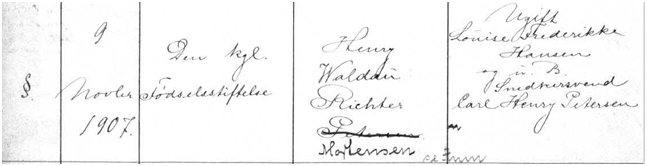 §.
9
Novber
1907.
Den kgl.
Fødselsstiftelse
Henry
Waldau
Richter
Petersen
Mortensen
Ugift
Louise Frederikke
Hansen
og u. B.
Snedkersvend
Carl Henry Petersen